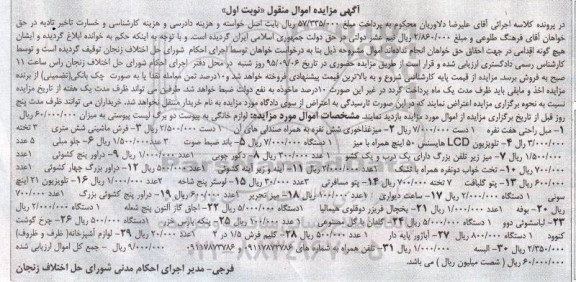 آگهی مزایده اموال منقول «نوبت اول»
در پرونده کلاسه اجرائی آقای علیرضا دلاوریان محکوم به پرداخت مبلغ ۵۷/۳۳۵/۰۰۰ ریال بابت اصل خواسته و هزینه دادرسی و هزینه کارشناسی و خسارت تاخیر تادیه در حق
خواهان آقای فرهنگ طلوعی و مبلغ ۲/۸۶۰/۰۰۰ ریال نیم عشر دولتی در حق دولت جمهوری اسلامی ایران گردیده است. و با توجه به اینکه حکم به خوانده ابلاغ گردیده و ایشان
هیچ گونه اقدامی در جهت احقاق حق خواهان انجام نداده‌اند اموال مشروحه ذیل بنا به درخواست خواهان توسط اجرای احکام شورای حل اختلاف زنجان توقیف گردیده است و توسط
کارشناس رسمی دادگستری ارزیابی شده و قرار است از طریق مزایده حضوری در تاریخ ۹۵/۰۹/۰۶ روز شنبه در محل دفتر اجرای احکام شورای حل اختلاف زنجان راس ساعت ۱۱
صبح به فروش برسد. مزایده از قیمت پایه کارشناس شروع و به بالاترین قیمت پیشنهادی فروخته خواهد شد و ۱۰درصد ثمن معامله نقدا یا به صورت چک بانکی(تضمینی) از برنده
مزایده اخذ و مابقی باید ظرف مدت یک ماه پرداخت گردد در غیر این صورت ۱۰درصد ماخوذه به نفع دولت ضبط خواهد شد. طرفین می توانند ظرف مدت یک هفته از تاریخ مزایده
نسبت به نحوه برگزاری مزایده اعتراض نمایند که در این صورت تا رسیدگی به اعتراض از سوی دادگاه مورد مزایده به نام خریدار منتقل نخواهد شد. خریداران می توانند ظرف مدت پنج
روز قبل از تاریخ برگزاری مزایده از اموال مورد مزایده بازدید نمایند. مشخصات اموال مورد مزایده: لوازم خانگی به پیوست دو برگ لیست پیوستی به میزان ۶۰/۰۰۰/۰۰۰ ریال
۱- مبل راحتی هفت نفره ۱ دست ۷/۰۰۰/۰۰۰ ریال ۲- میز غذاخوری شش نفره به همراه صندلی های آن ۱ دست ۲/۵۰۰/۰۰۰ ریال ۳- فرش ماشینی شش متری ۳ تخته
۳/۰۰۰/۰۰۰ ریال ۴- تلویزیون LCD هایسنس ۵۰ اینچ همراه با میز ۱ دستگاه ۷/۰۰۰/۰۰۰ ریال ۵- باند ضبط صوت ۳ عدد ۱/۵۰۰/۰۰۰ ریال ۶- جلو مبلی ۵ عدد
۱/۵۰۰/۰۰۰ ریال ۷- میز زیر تلفن بزرگ دارای یک درب و یک کشو ۱ عدد ۳۰۰/۰۰۰ ریال ۸- دکور چوبی ۱ عدد ۱/۰۰۰/۰۰۰ ریال ۹- دراور پنج کشوئی ۱ عدد
۷۰۰/۰۰۰ ریال ۱۰- تخت خواب دونفره همراه با تشک ۱ عدد ۲/۰۰۰/۰۰۰ ریال ۱۱- آینه و زیر آینه کشوئی ۲ عدد ۵۰۰/۰۰۰ ریال ۱۲- دراور بزرگ چهار کشوئی ۱ عدد
۶۰۰/۰۰۰ ریال ۱۳- پتو گلبافت ۷ تخته ۷۰۰/۰۰۰ ریال ۱۴- پتو مسافرتی ۳ عدد ۳۰۰/۰۰۰ ریال ۱۵- لوستر پنج شاخه ۲ عدد ۱/۰۰۰/۰۰۰ ریال ۱۶- تلویزیون ۲۱ اینچ
سونی ۱ دستگاه ۲/۰۰۰/۰۰۰ ریال ۱۷- ساعت دیواری ۱ عدد ۱۰۰/۰۰۰ ریال ۱۸- میز تحریر ۱ عدد ۶۰۰/۰۰۰ ریال ۱۹- دراور پنج کشوئی بزرگ ۱ عدد ۷۰۰/۰۰۰
ریال ۲۰- بوفه ۱ عدد ۱/۰۰۰/۰۰۰ ریال ۲۱- یخچال فریزر دوقلوی هیمالیا ۱ دستگاه ۵/۰۰۰/۰۰۰ ریال ۲۲- اجاق گاز آلتون پنج شعله ۱ دستگاه ۲/۰۰۰/۰۰۰ ریال
۲۳- لباسشوئی دوو ۱ دستگاه ۵/۰۰۰/۰۰۰ ریال ۲۴- گلدان با گل مصنوعی ۱ عدد ۱۰۰/۰۰۰ ریال ۲۵- پنکه پارس خزر ۱ دستگاه ۵۰۰/۰۰۰ ریال ۲۶- چرخ گوشت
کنوود ۱ دستگاه ۸۰۰/۰۰۰ ریال ۲۷- آباژور پایه دار ۱ عدد ۵۰۰/۰۰۰ ریال ۲۸- گلیم فرش ۱/۵ در ۲ ۱ عدد ۲۰۰/۰۰۰ ریال ۲۹- لوازم آشپزخانه(ظرف و ظروف)
۲/۳۵۰/۰۰۰ ریال ۳۰- البسه ۱/۰۰۰/۰۰۰ ریال ۳۱- تلفن همراه به شماره های ۰۹۱۱۷۸۷۳۷۸۶ و ۹/۰۰۰/۰۰۰ ریال - جمع کل اموال ارزیابی شده
۶۰/۰۰۰/۰۰۰ ریال ( شصت میلیون ریال ) می باشد.
فرجی- مدیر اجرای احکام مدنی شورای حل اختلاف زنجان